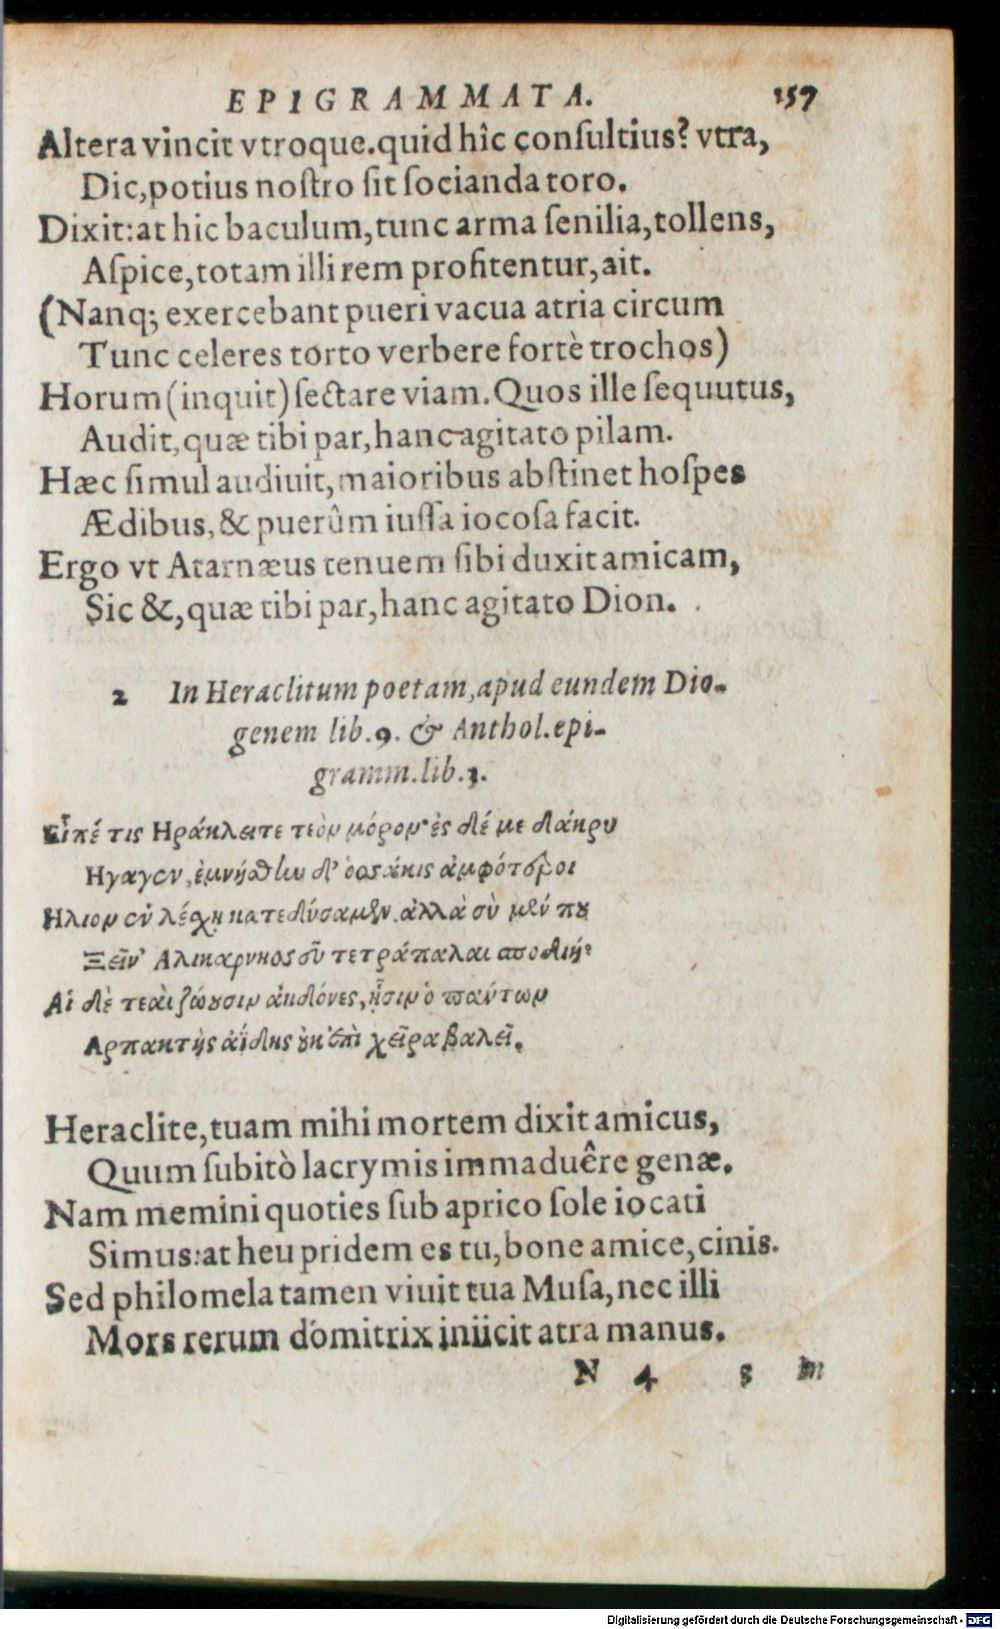 EPIGRAMMATA. 157
Altera vincit vtroque.quid hîc conſultius? vtra,
Dic,potius noſtro ſit ſocianda toro.
Dixit:at hic baculum,tunc arma ſenilia,tollens,
Aſpice,totam illi rem profitentur,ait.
(Nanq; exercebant pueri vacua atria circum
Tunc celeres torto verbere fortè trochos)
Horum (inquit) ſectare viam.Quos ille ſequutus,
Audit,quæ tibi par,hanc agitato pilam.
Hæc ſimul audiuit,maioribus abſtinet hoſpes
Ædibus,& puerûm iuſſa iocoſa facit.
Ergo vt Atarnæus tenuem ſibi duxit amicam,
Sic &,quæ tibi par,hanc agitato Dion.
2 In Heraclitum poetam,apud eundem Dio-
genem lib.9. & Anthol.epi-
gramm.lib.3.
Εἶπέ τις Ηράκλειτε τεὸν μόρον· ἐς δέ με δάκρυ
Ηγαγεν, ἐμνήσθην δ' ὁσσάκις ἀμφότεροι
Ηλιον ἐν λέσχῃ κατεδύσαμεν. ἀλλὰ σὺ μέν που
Ξεῖν' Αλικαρνηος σῦ τετράπαλαι σποδιή·
Αἱ δὲ τεαὶ ζώουσιν ἀηδόνες, ᾗσιν ὁ πάντων
Αρπακτὴς ἀΐδης οὐκ ἐπὶ χεῖρα βαλεῖ.
Heraclite,tuam mihi mortem dixit amicus,
Quum ſubitò lacrymis immaduêre genæ.
Nam memini quoties ſub aprico ſole iocati
Simus:at heu pridem es tu,bone amice,cinis.
Sed philomela tamen viuit tua Muſa,nec illi
Mors rerum domitrix iniicit atra manus.
N 4 3 In
Digitalisierung gefördert durch die Deutsche Forschungsgemeinschaft - DFG